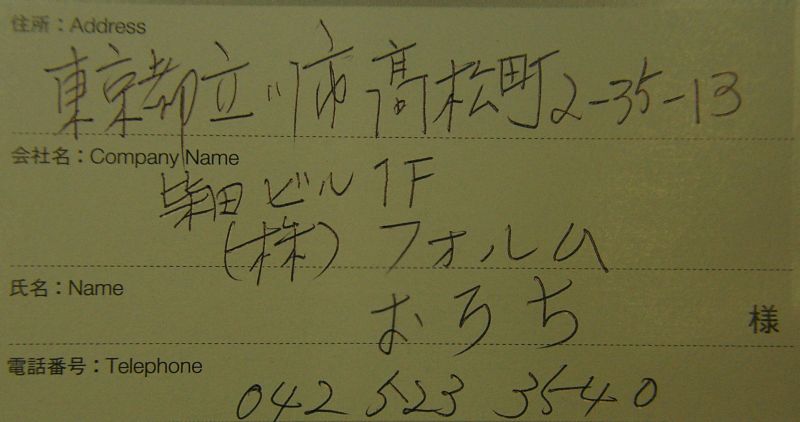 住所：Address
東京都立川市高松町2-35-13
会社名：Company Name
柴田ビル1F
(株)フォルム
氏名：Name
おうち 様
電話番号：Telephone
042 523 3540